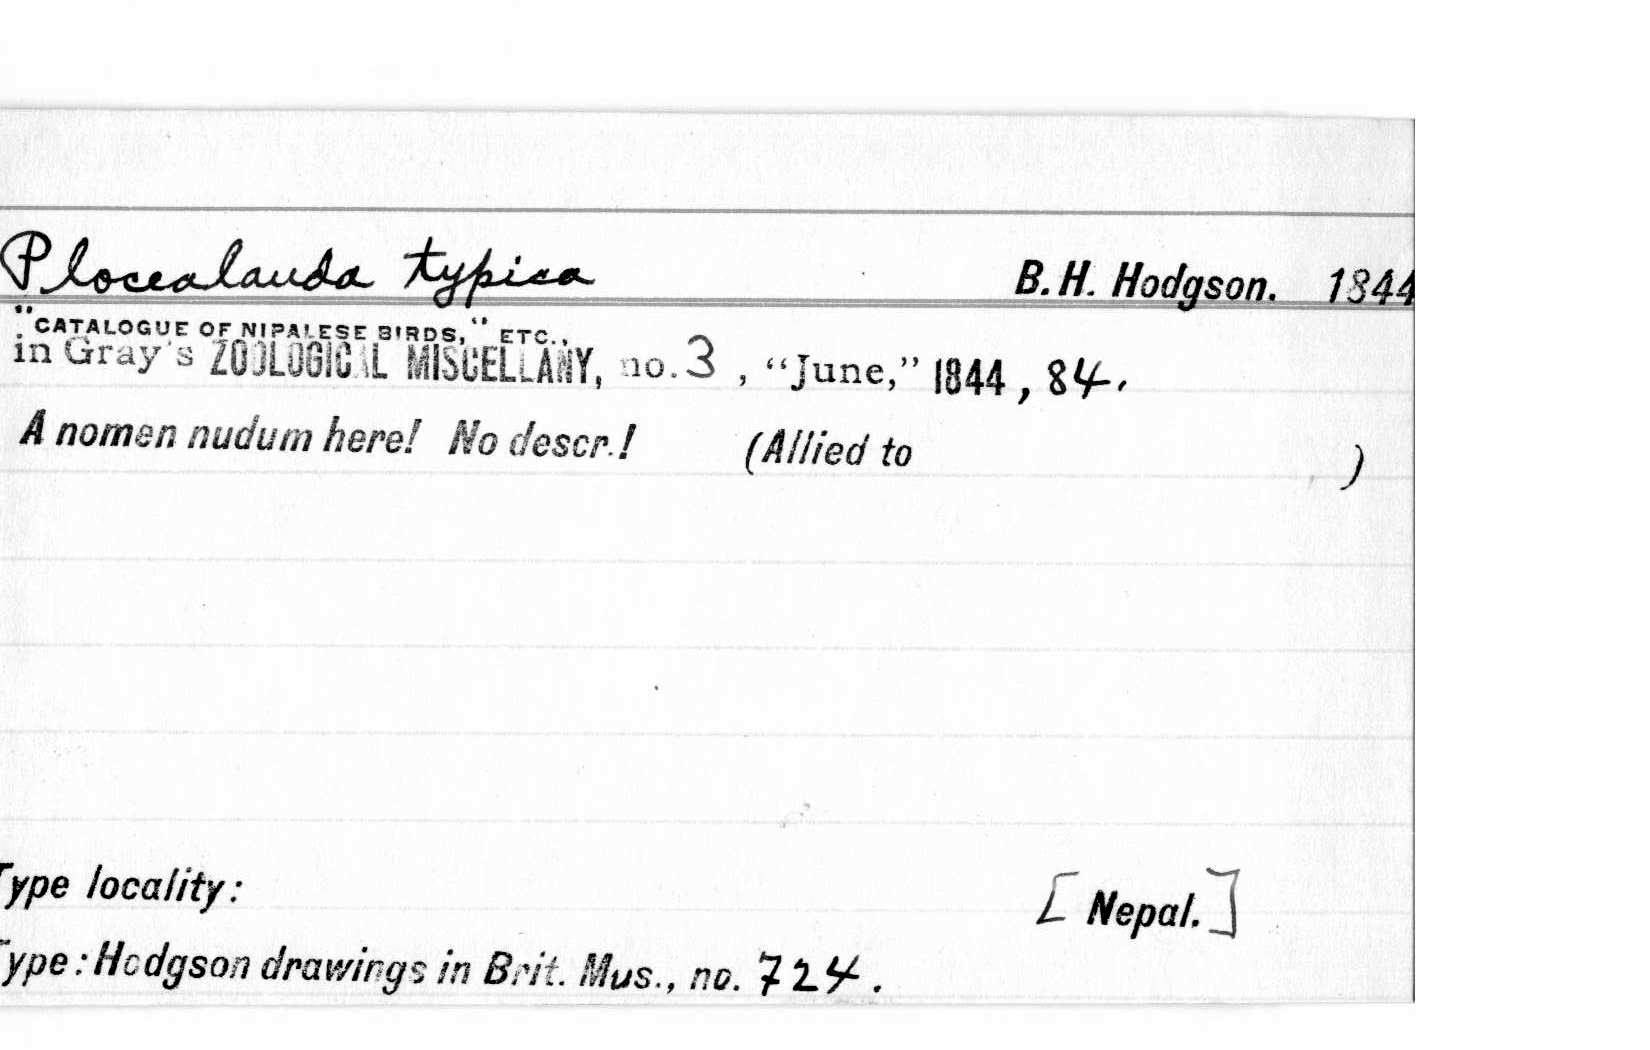 Plocealauda typica B. H. Hodgson. 1844
"CATALOGUE OF NIPALESE BIRDS," ETC.,
in Gray's ZOOLOGICAL MISCELLANY, no. 3, "June," 1844, 84.
A nomen nudum here! No descr.! (Allied to )
Type locality: [Nepal.]
Type: Hodgson drawings in Brit. Mus., no. 724.